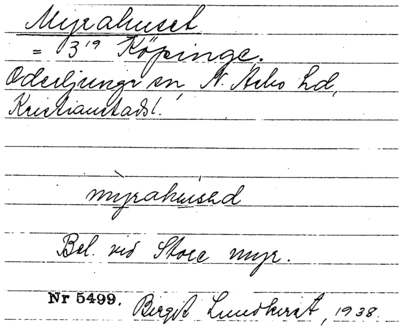 Myrahuset
= 3¹⁹ Köpinge.
Oderljunga sn, N. Åsbo hd,
Kristianstads l.
myrahúsəd
Bel. vid Store myr.
Nr 5499. Bergit Lundkvist, 1938.